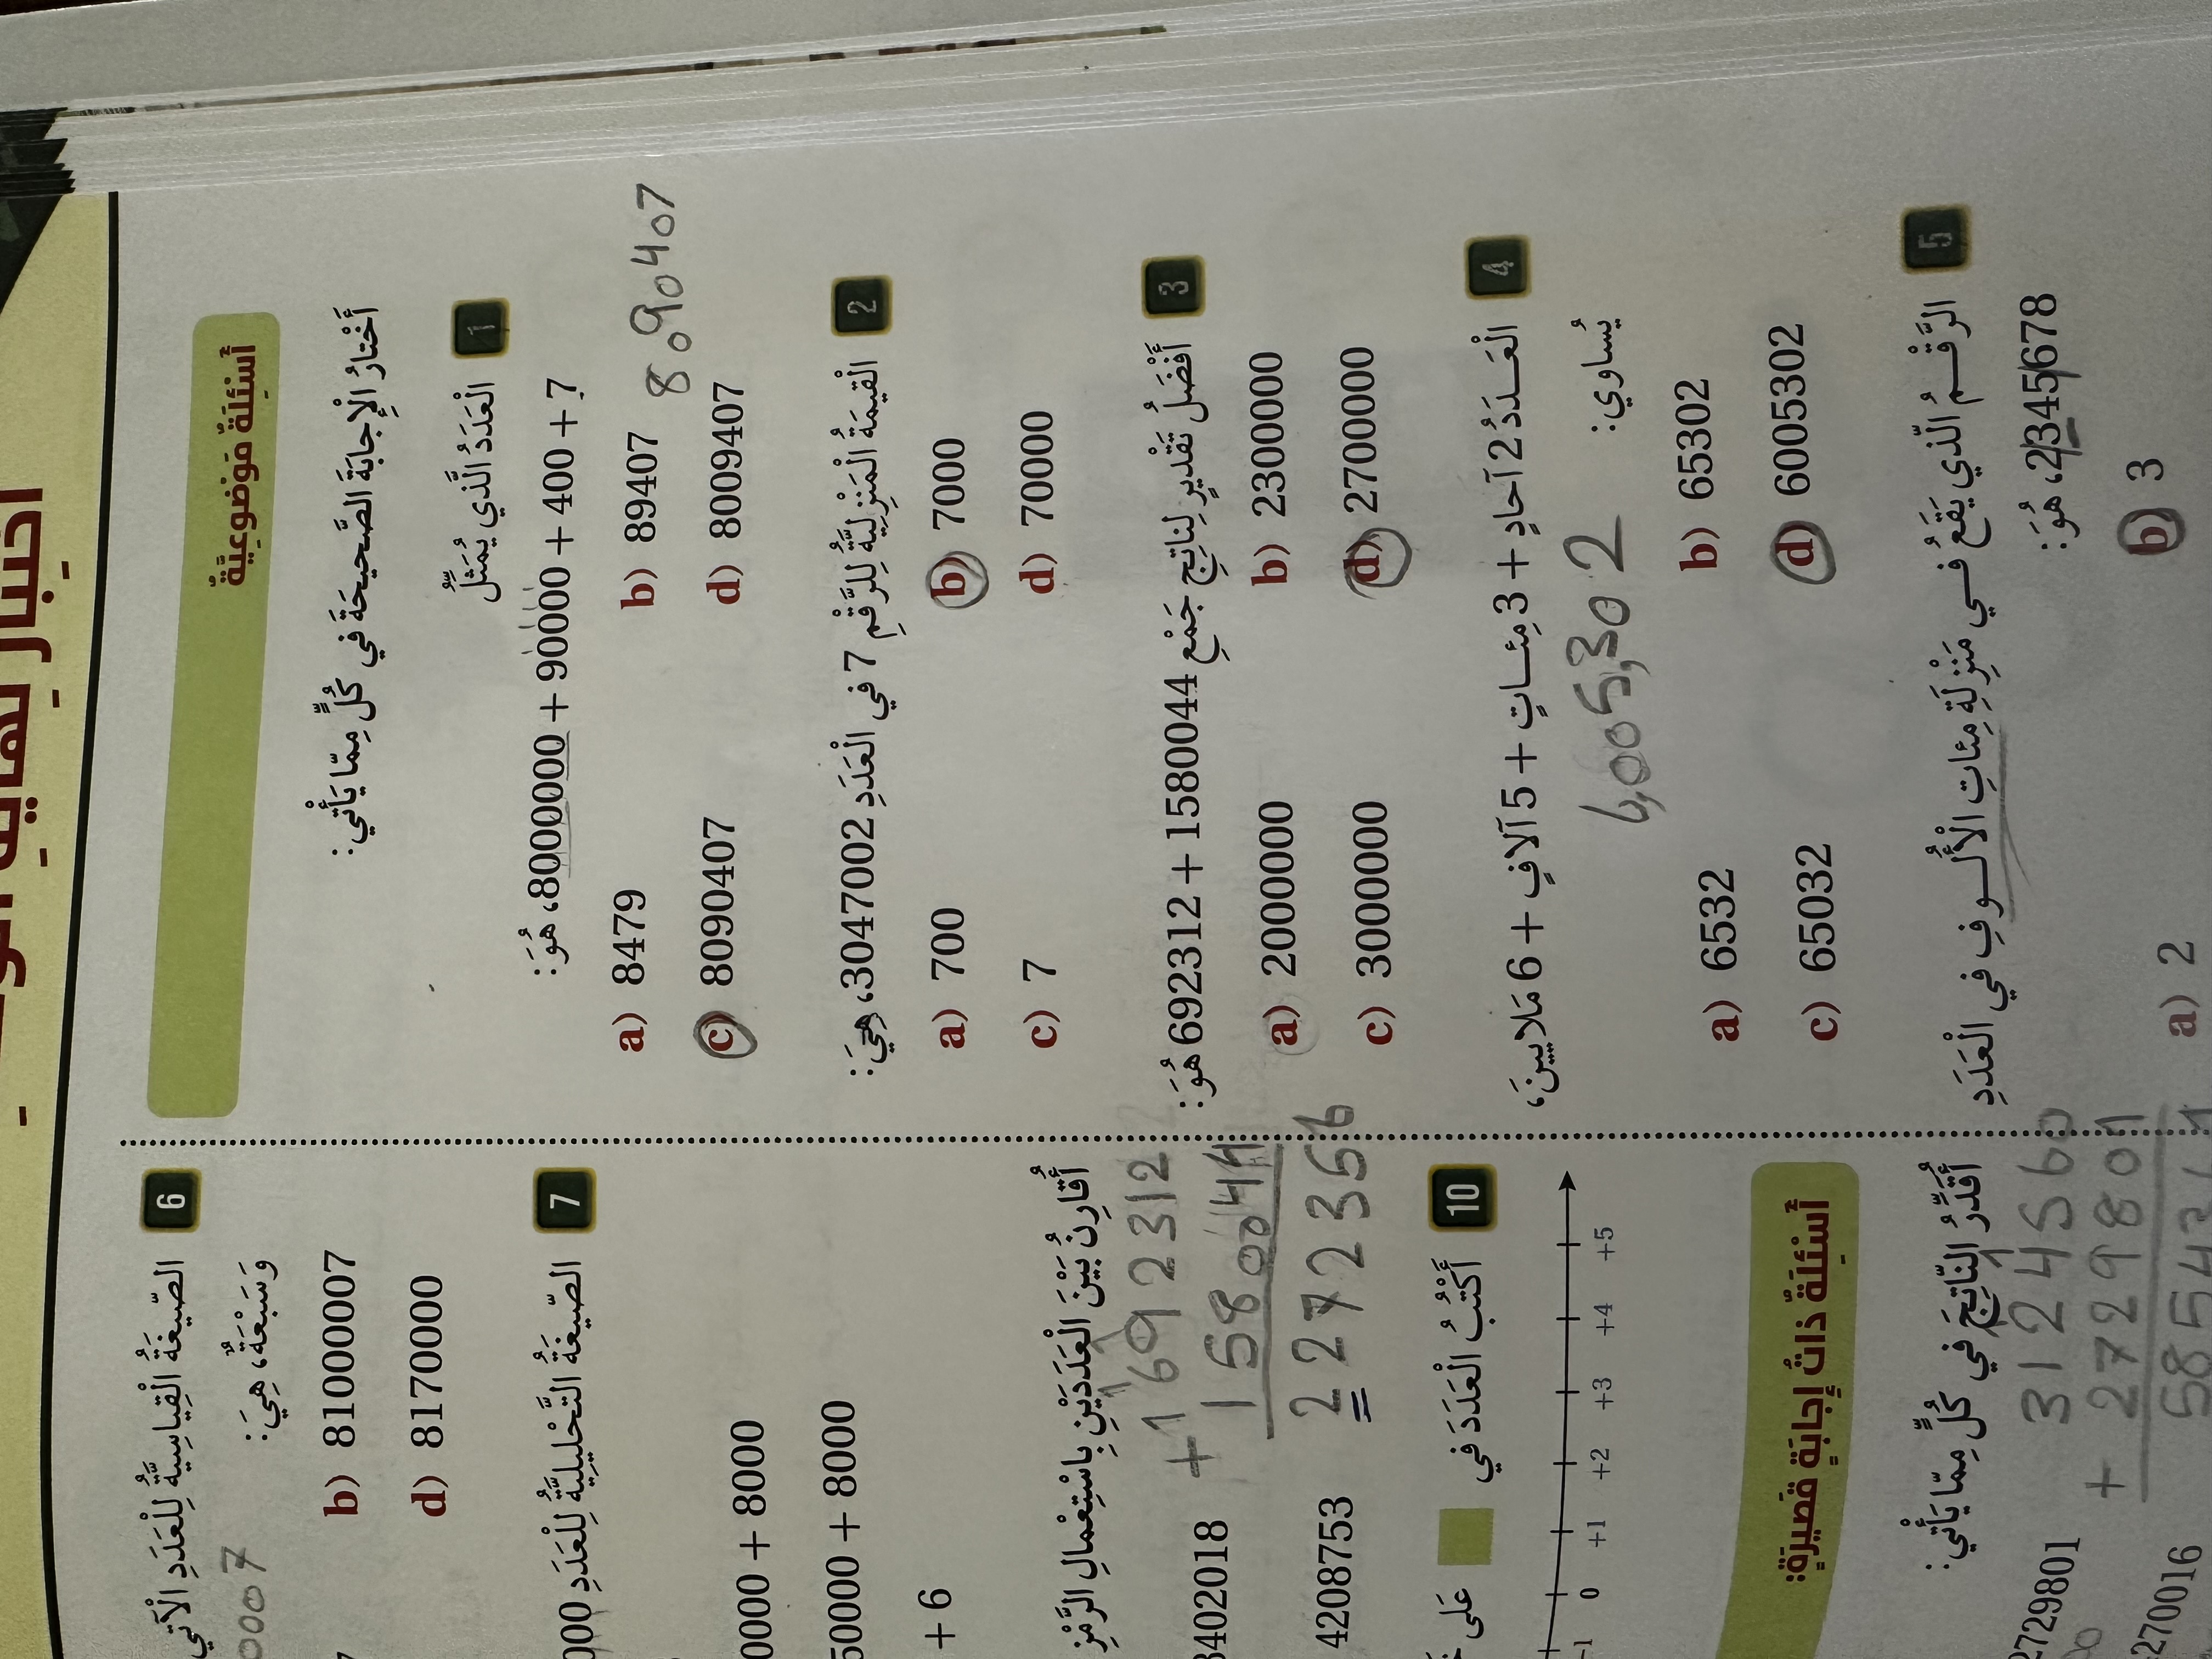 اختبار نهاية
أَسْئِلَةٌ مَوْضوعِيَّةٌ
أَخْتارُ الْإِجابَةَ الصَّحيحَةَ في كُلٍّ مِمّا يَأْتي:
1 الْعَدَدُ الَّذي يُمَثِّلُ
8000000 + 90000 + 400 + 7، هُوَ:
a) 8479 b) 89407
8,090407
c) 8090407 d) 8009407
2 الْقيمَةُ الْمَنْزِلِيَّةُ لِلرَّقْمِ 7 في الْعَدَدِ 3047002، هِيَ:
a) 700 b) 7000
c) 7 d) 70000
3 أَفْضَلُ تَقْديرٍ لِناتِجِ جَمْعِ 1580044 + 692312 هُوَ:
a) 2000000 b) 2300000
c) 3000000 d) 2700000
4 الْعَـدَدُ 2 آحادٍ + 3 مِئـاتٍ + 5 آلافٍ + 6 مَلايينَ،
يُساوي:
6,005,302
a) 6532 b) 65302
c) 65032 d) 6005302
5 الرَّقْـمُ الَّذي يَقَعُ فـي مَنْزِلَةِ مِئاتِ الْأُلـوفِ في الْعَدَدِ
2345678، هُوَ:
a) 2 b) 3
6 الصّيغَةُ الْقِياسِيَّةُ لِلْعَدَدِ الْآتي
وَسَبْعَةٌ، هِيَ:
0007
b) 8100007
d) 8170000
7 الصّيغَةُ التَّحْليلِيَّةُ لِلْعَدَدِ 000
0000 + 8000
50000 + 8000
+ 6
أُقارِنُ بَيْنَ الْعَدَدَيْنِ بِاسْتِعْمالِ الرَّمْزِ
692312
+ 1580044
2272356
3402018
4208753
10 أَكْتُبُ الْعَدَدَ في عَلى
-1 0 +1 +2 +3 +4 +5
أَسْئِلَةٌ ذاتُ إِجابَةٍ قَصيرَةٍ:
أُقَدِّرُ النّاتِجَ في كُلٍّ مِمّا يَأْتي:
3124560
+ 2729801
2729801
270016